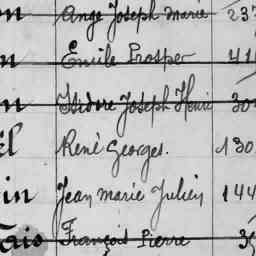 n Ange Joseph Marie 237
n Emile Prosper 41
n Isidore Joseph Henri 30
el René Georges. 130
in Jean Marie Julien 144
çais François Pierre 35